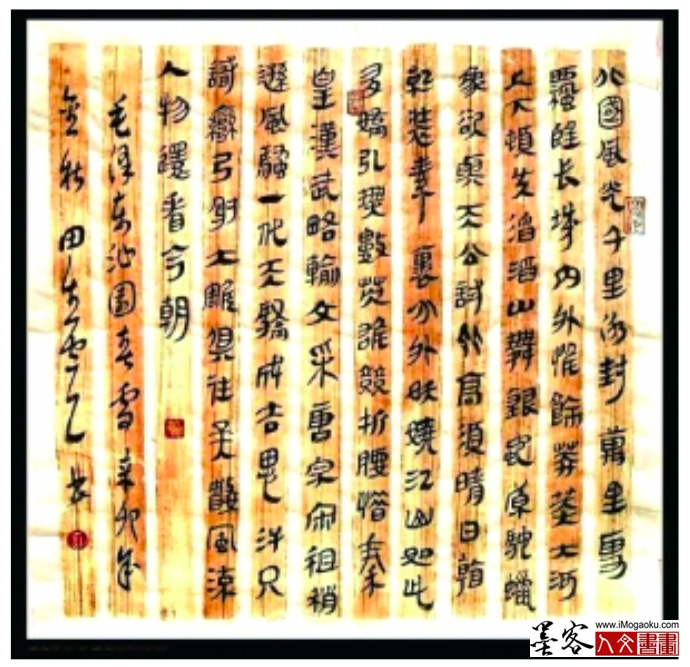 北國風光千里冰封萬里雪
飄望長城內外惟餘莽莽大河
上下頓失滔滔山舞銀蛇原馳蠟
象欲與天公試比高須晴日看
紅裝素裹分外妖嬈江山如此
多嬌引無數英雄競折腰惜秦
皇漢武略輸文采唐宗宋祖稍
遜風騷一代天驕成吉思汗只
識彎弓射大雕俱往矣數風流
人物還看今朝
毛澤东沁園春雪辛卯年
金秋 田 书
www.iMogaoku.com
墨客人文書畫